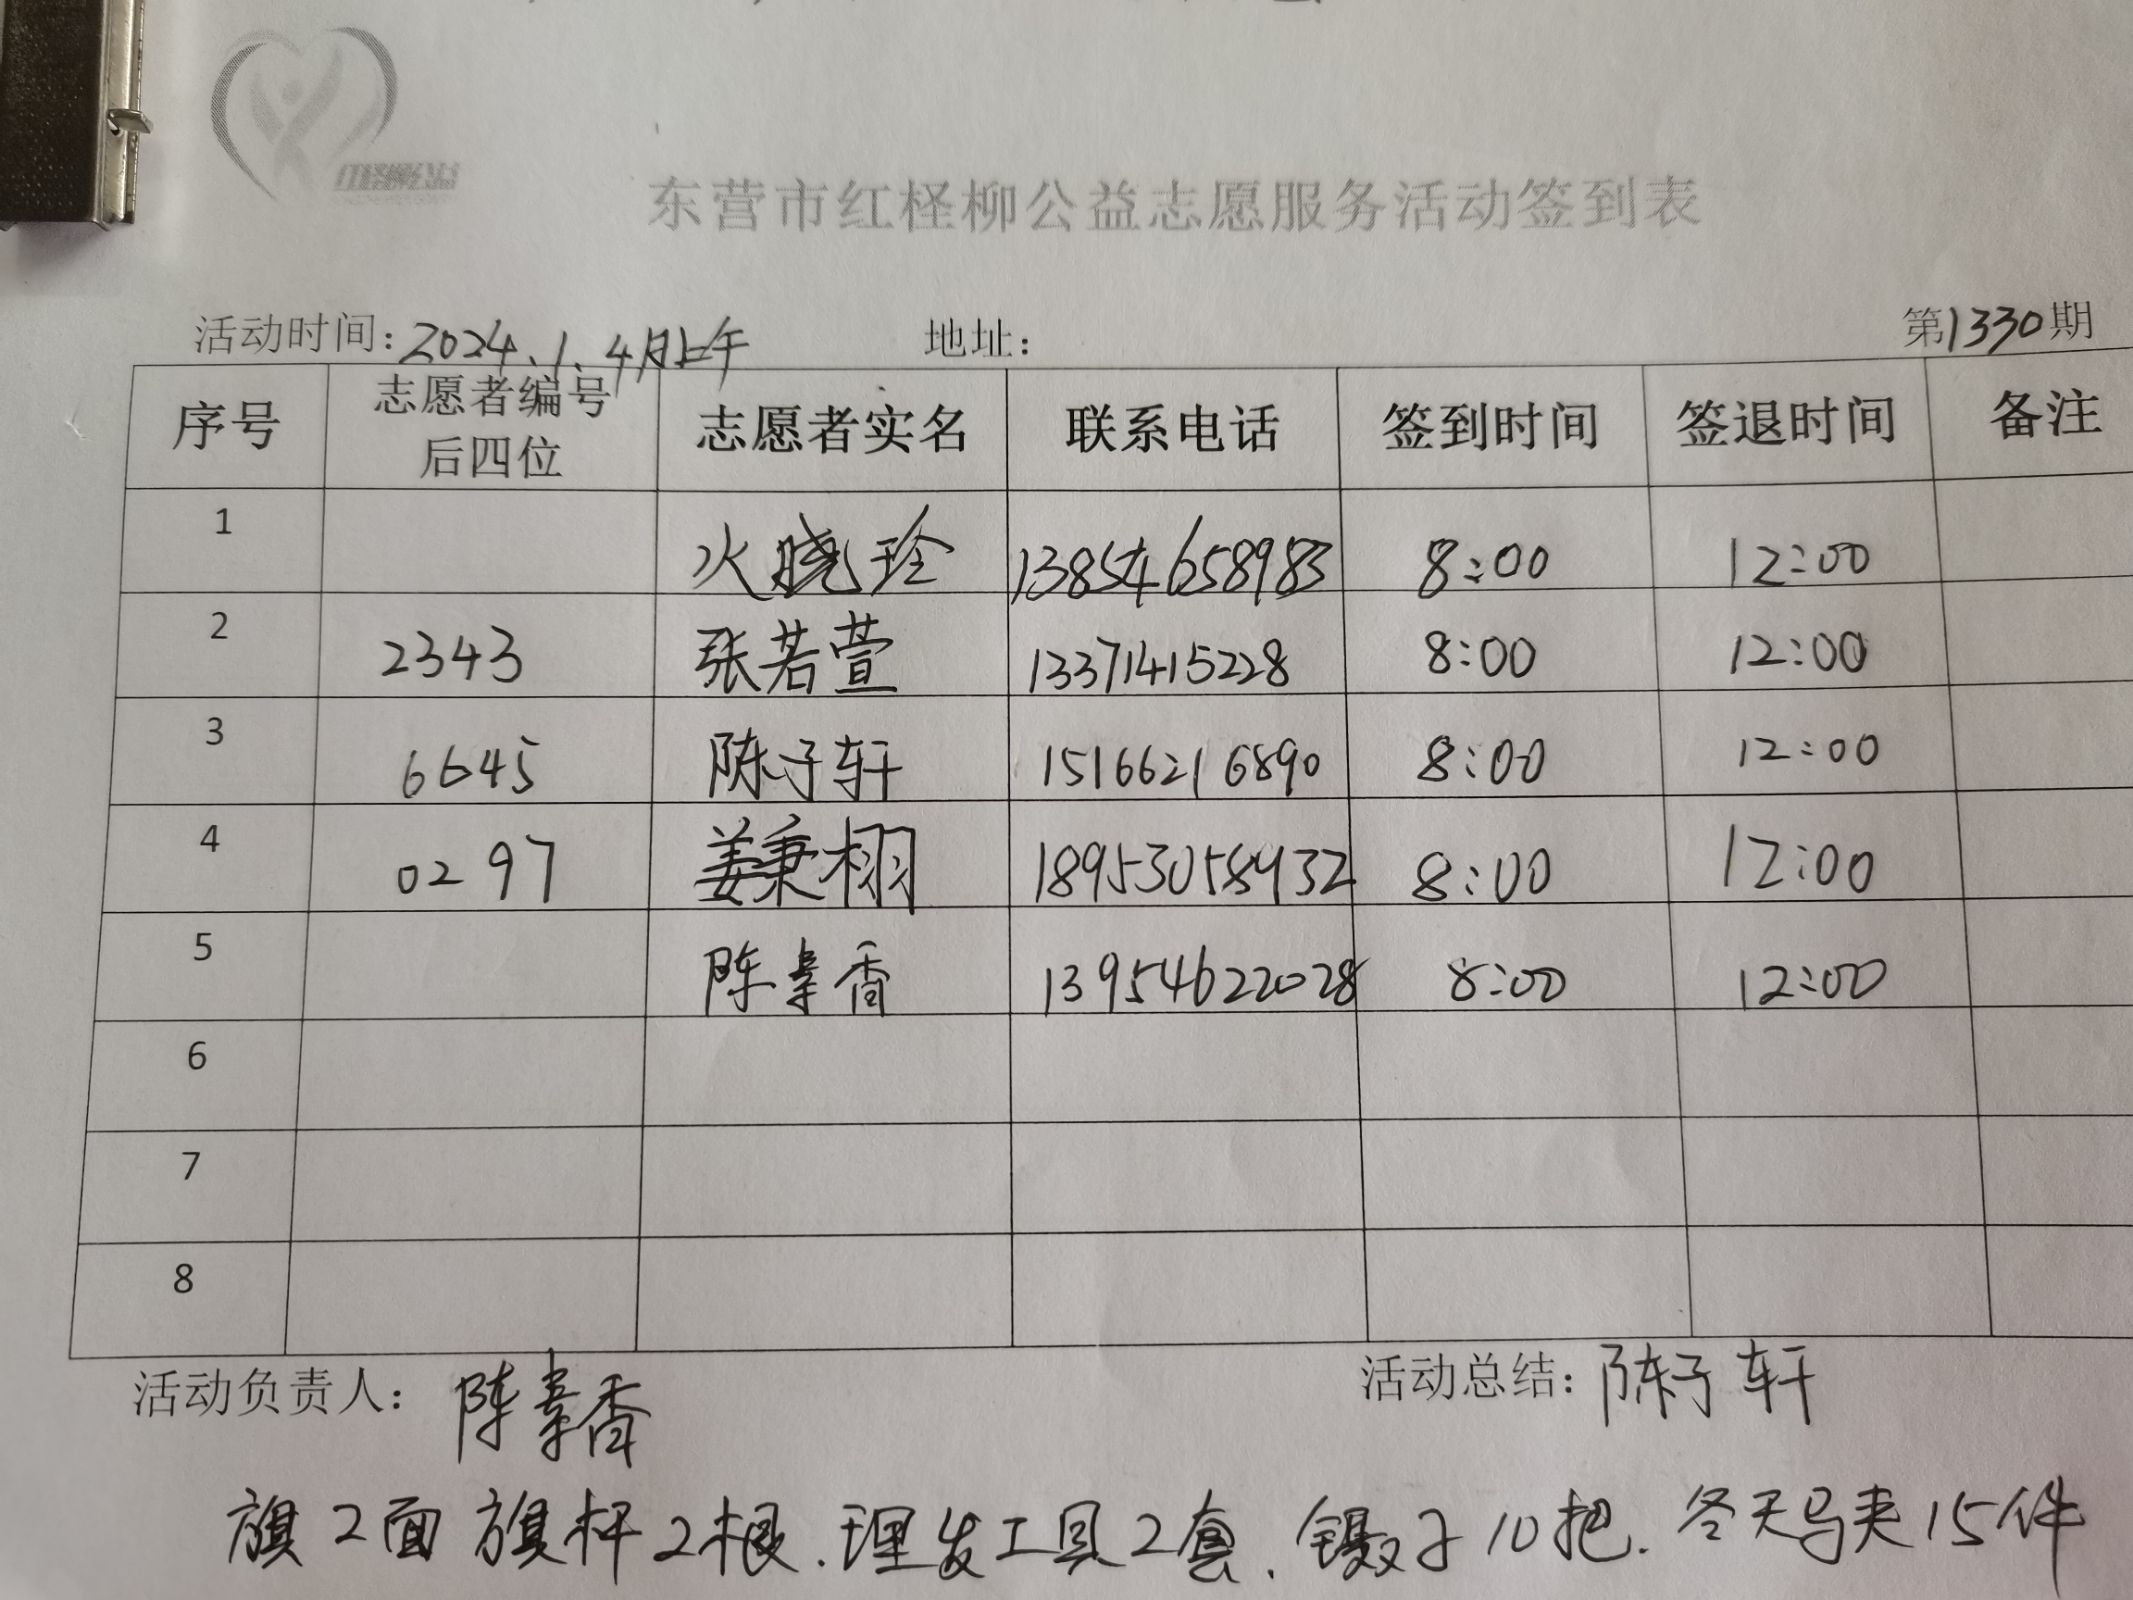 东营市红柽柳公益志愿服务活动签到表
活动时间：2024.1.4日上午 地址： 第1330期
序号 志愿者编号后四位 志愿者实名 联系电话 签到时间 签退时间 备注
1 火晓玲 13854658983 8:00 12:00
2 2343 张若萱 13371415228 8:00 12:00
3 6645 陈子轩 15166216890 8:00 12:00
4 0297 姜秉栩 18953058432 8:00 12:00
5 陈素香 13954622028 8:00 12:00
6
7
8
活动负责人： 陈素香 活动总结：陈子轩
旗2面 旗杆2根.理发工具2套.镊子10把.冬天马夹15件